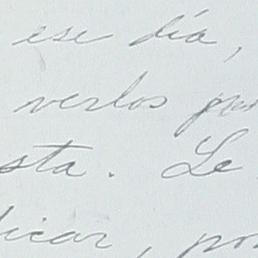 ese día,
verlos
sta. Le
icar, po